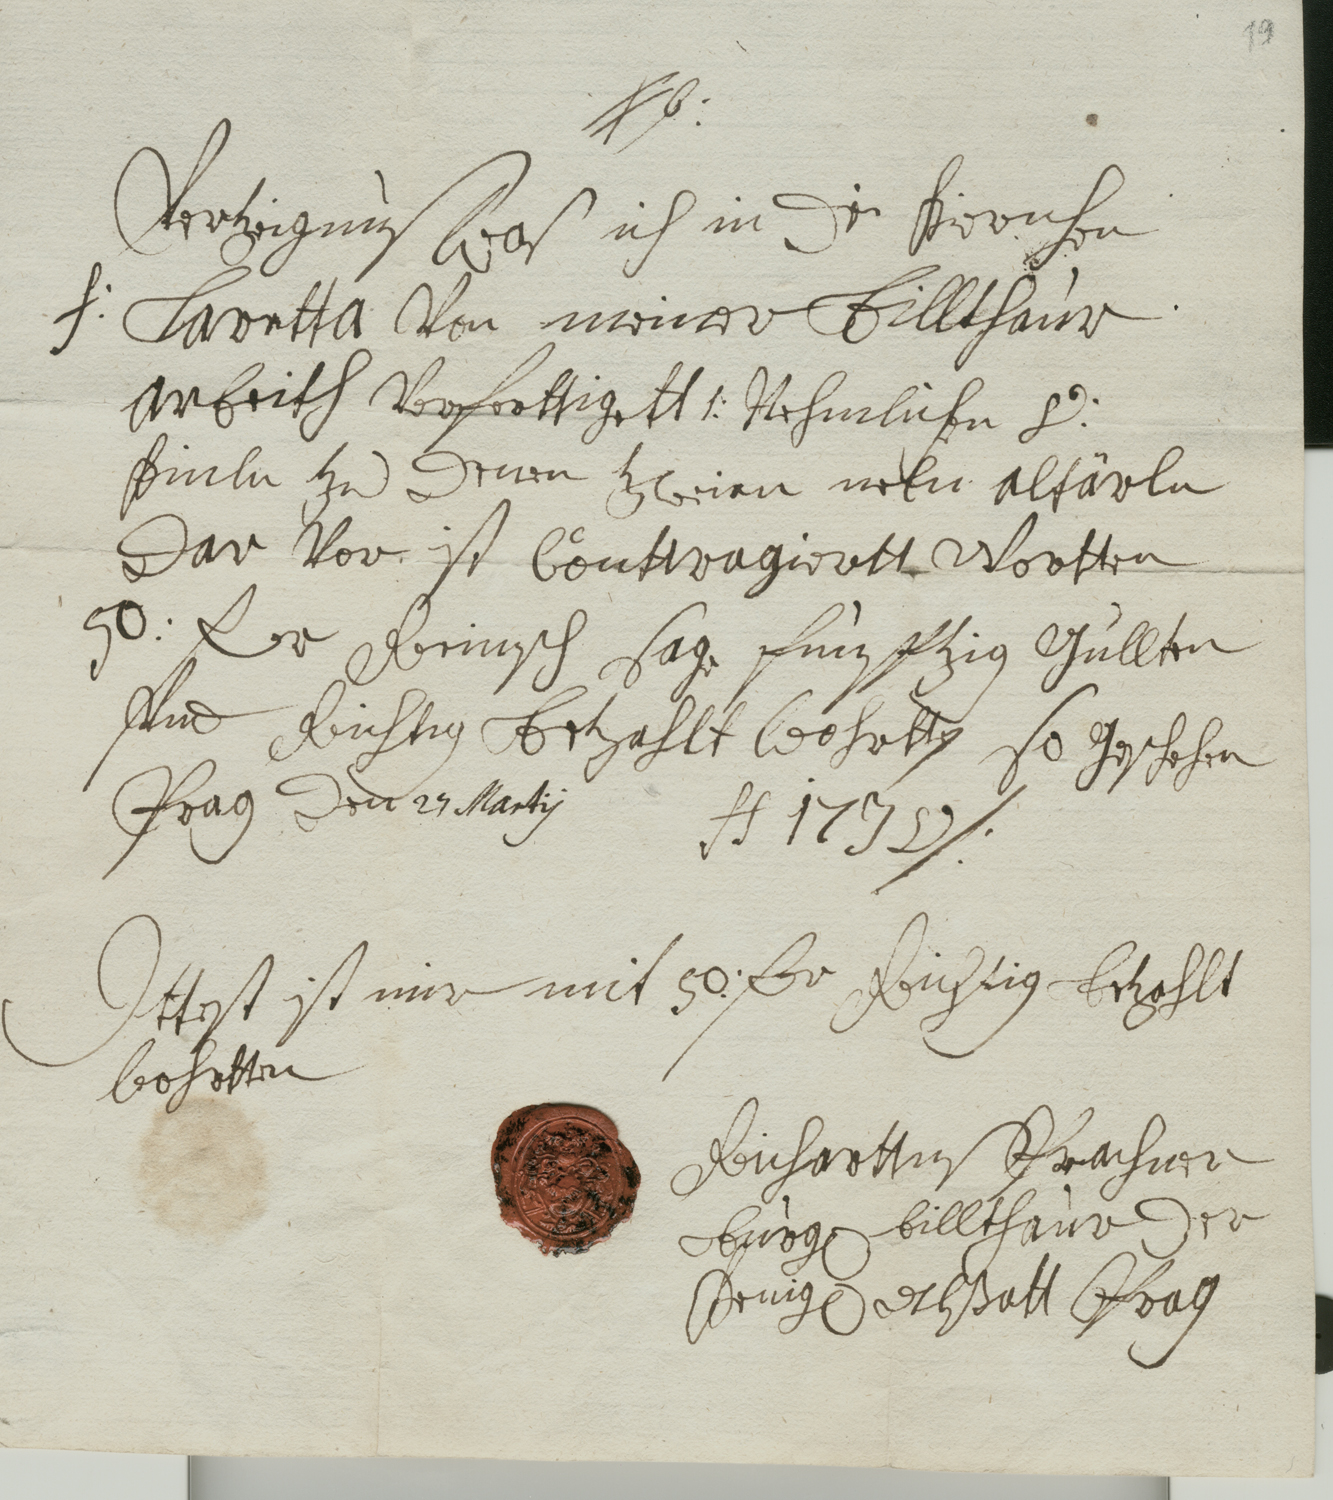 19
Vertzeignus Was ich in der Kierchen
S: Laretta Von meiner Billthaur
arbeith Verferttigett /: Nehmlichen 8:
Kindln zu denen zweien neben altärln
Dar Vor ist Conttragiertt Wortten
50: fl Reinisch sage funfftzig Gullten
Und Richtig Betzahlt Wohrtten so Geschehen
Prag Den 27 Martij 1732
Attest ist mir mit 50: fl Richtig betzahlt
wohrtten
Richarttus Prachner
burg: billthaur Der
Kenig: altstatt Prag